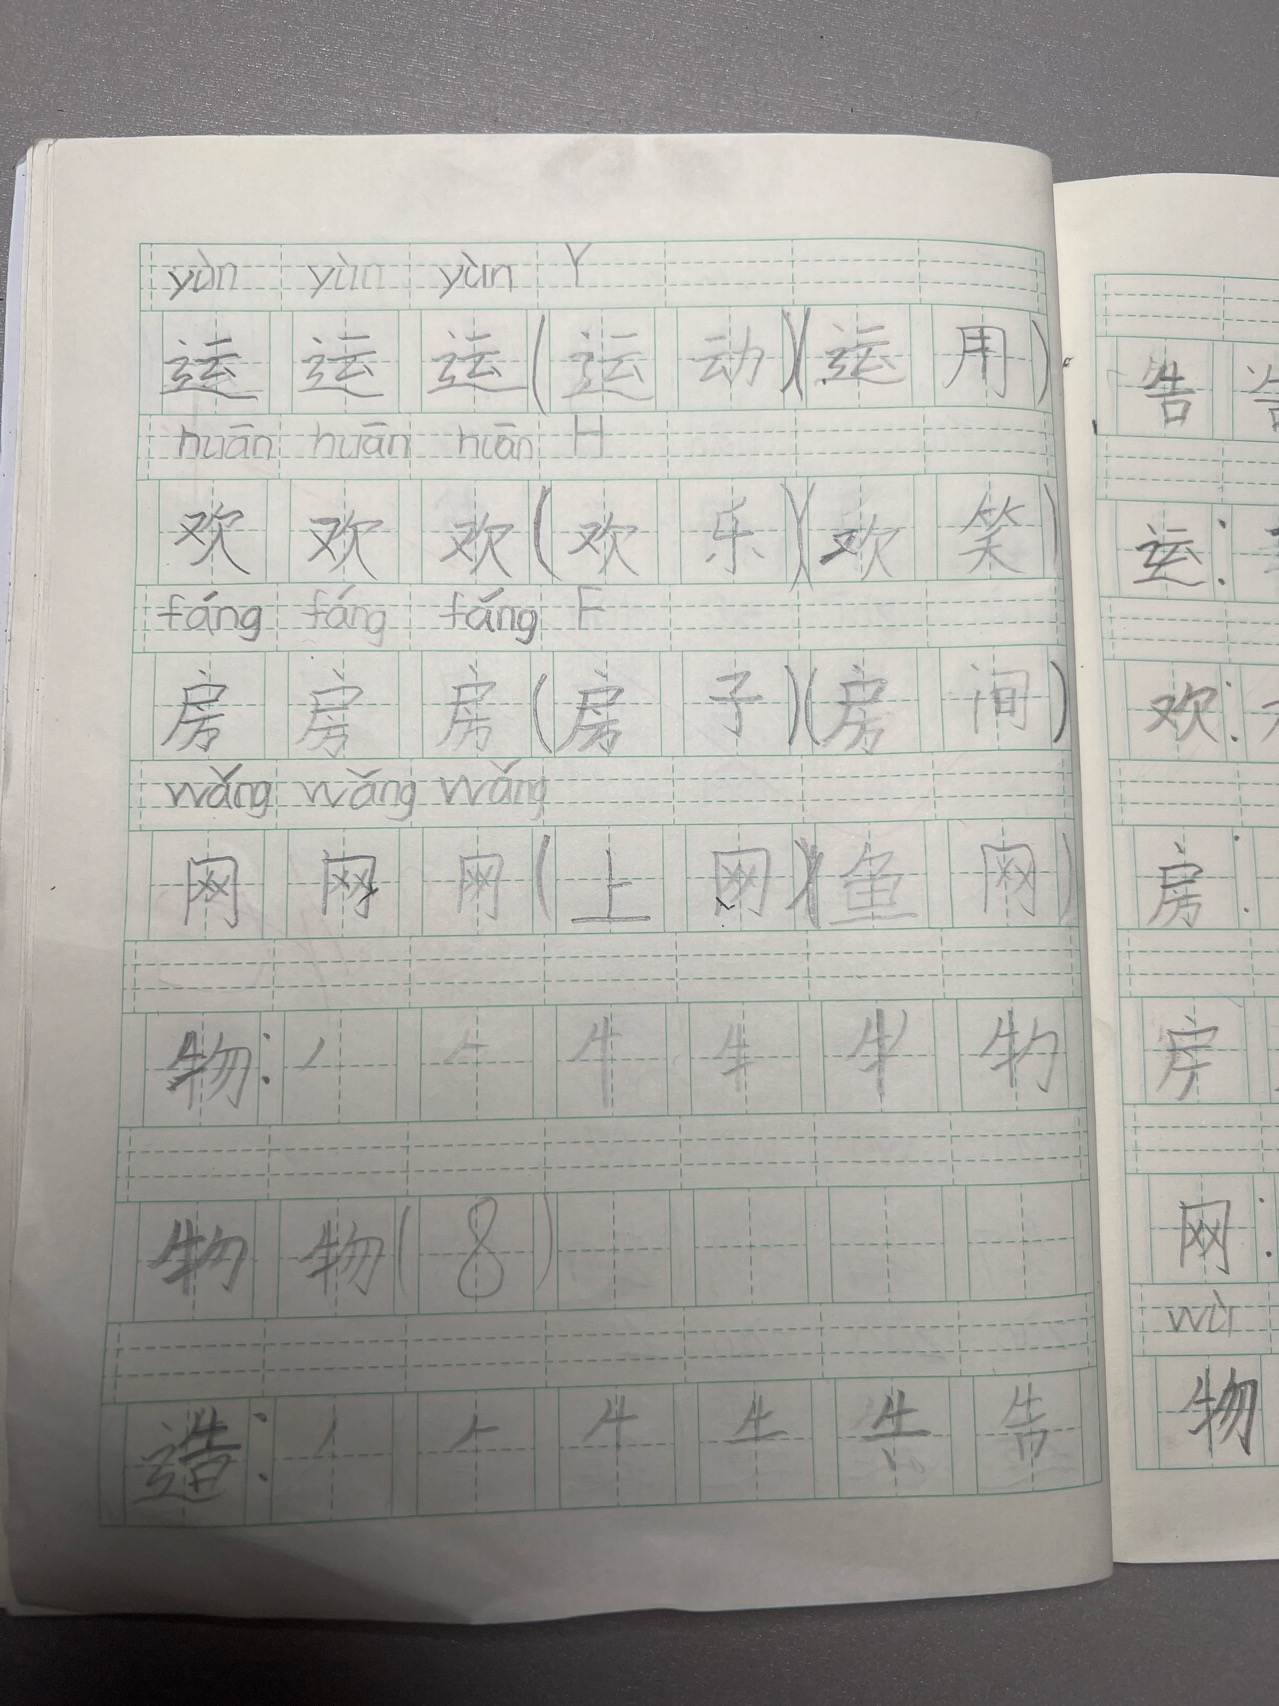 yùn yùn yùn Y
运 运 运 (运 动)(运 用)
huān huān huān H
欢 欢 欢 (欢 乐)(欢 笑)
fáng fáng fáng F
房 房 房 (房 子)(房 间)
wǎng wǎng wǎng
网 网 网 (上 网)(鱼 网)
物: 丿 𠂉 牛 牜
物 物 (8)
造: 丿 𠂉 告
告
运:
欢:
房:
房
网:
wù
物